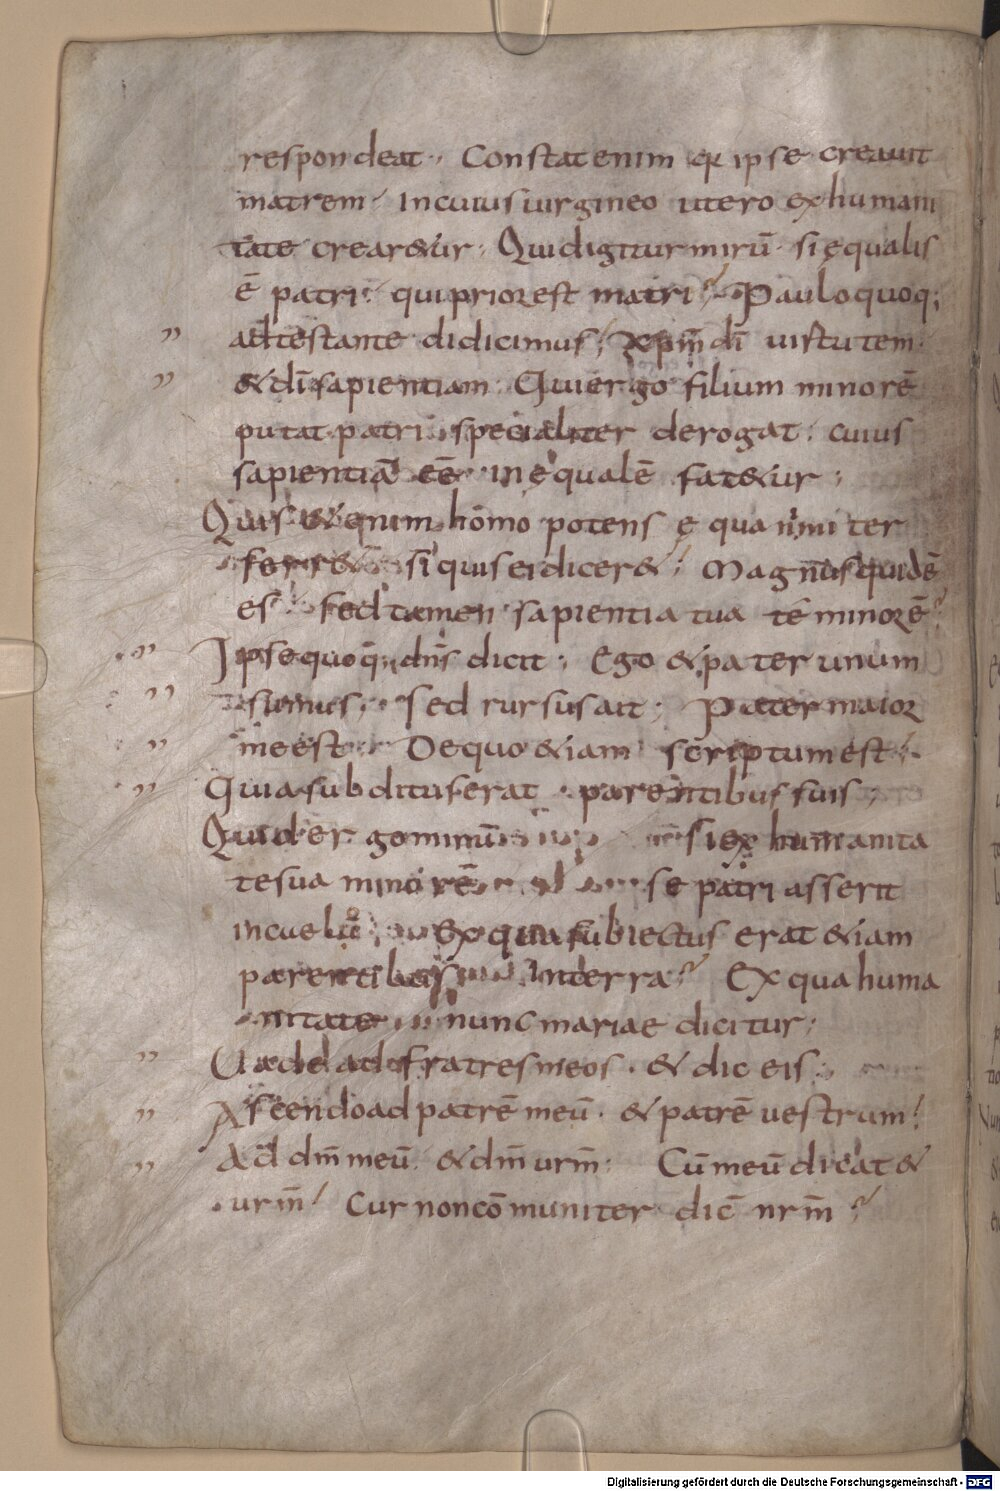 respondeat·, Constat enim qꝛ ipse creauit
matrem· In cuius uirgineo utero ex humani
tate crear&ur· Quid igitur mirū· si ęqualis
ē patri· qui prior est matri? Paulo quoq;
adtestante didicimus; xpm̄ dī uirtutem·
& dī sapientiam· Qui ergo filium minorē
putat patri specialiter derogat· cuius
sapientiā eē inęqualē fat&ur;
Quis enim homo potens ęquanimiter
ferr& si quis ei dicer&; Magnus quidē
es sed tamen sapientia tua te minorē?
Ipse quoq; dn̄s dicit; Ego & pater unum
sumus; sed rursus ait; Pater maior
me est De quo &iam scriptum est;
Quia subditus erat parentibus suis;
Quid ergo mirum si ex humanita
te sua minorē se patri asserit
in cuelū Ex qua subiectus erat &iam
parentibus in terra? Ex qua huma
nitate nunc mariae dicitur;
Uade ad fratres meos· & dic eis
Ascendo ad patrē meū· & patrē uestrum!
Ad dm̄ meū· & dm̄ urm̄· Cū meū dicat &
urm̄! Cur non cōmuniter dic̄ nrm̄?
Digitalisierung gefördert durch die Deutsche Forschungsgemeinschaft - DFG